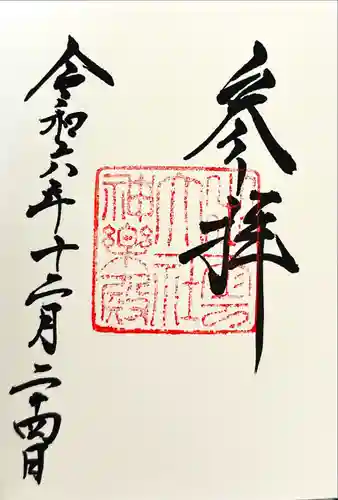 参拝
出雲
大社
神樂殿
令和六年十二月二十四日